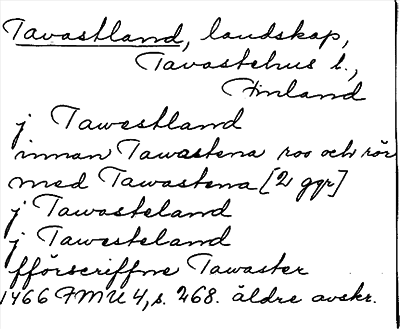 Tavastland, landskap,
Tavastehus l.,
Finland
j Tawestland
innan Tawastena roo och rör
med Tawastena [2 ggr]
j Tawasteland
j Tawesteland
fförscriffne Tawaster
1466 FMU 4, s. 268. äldre avskr.